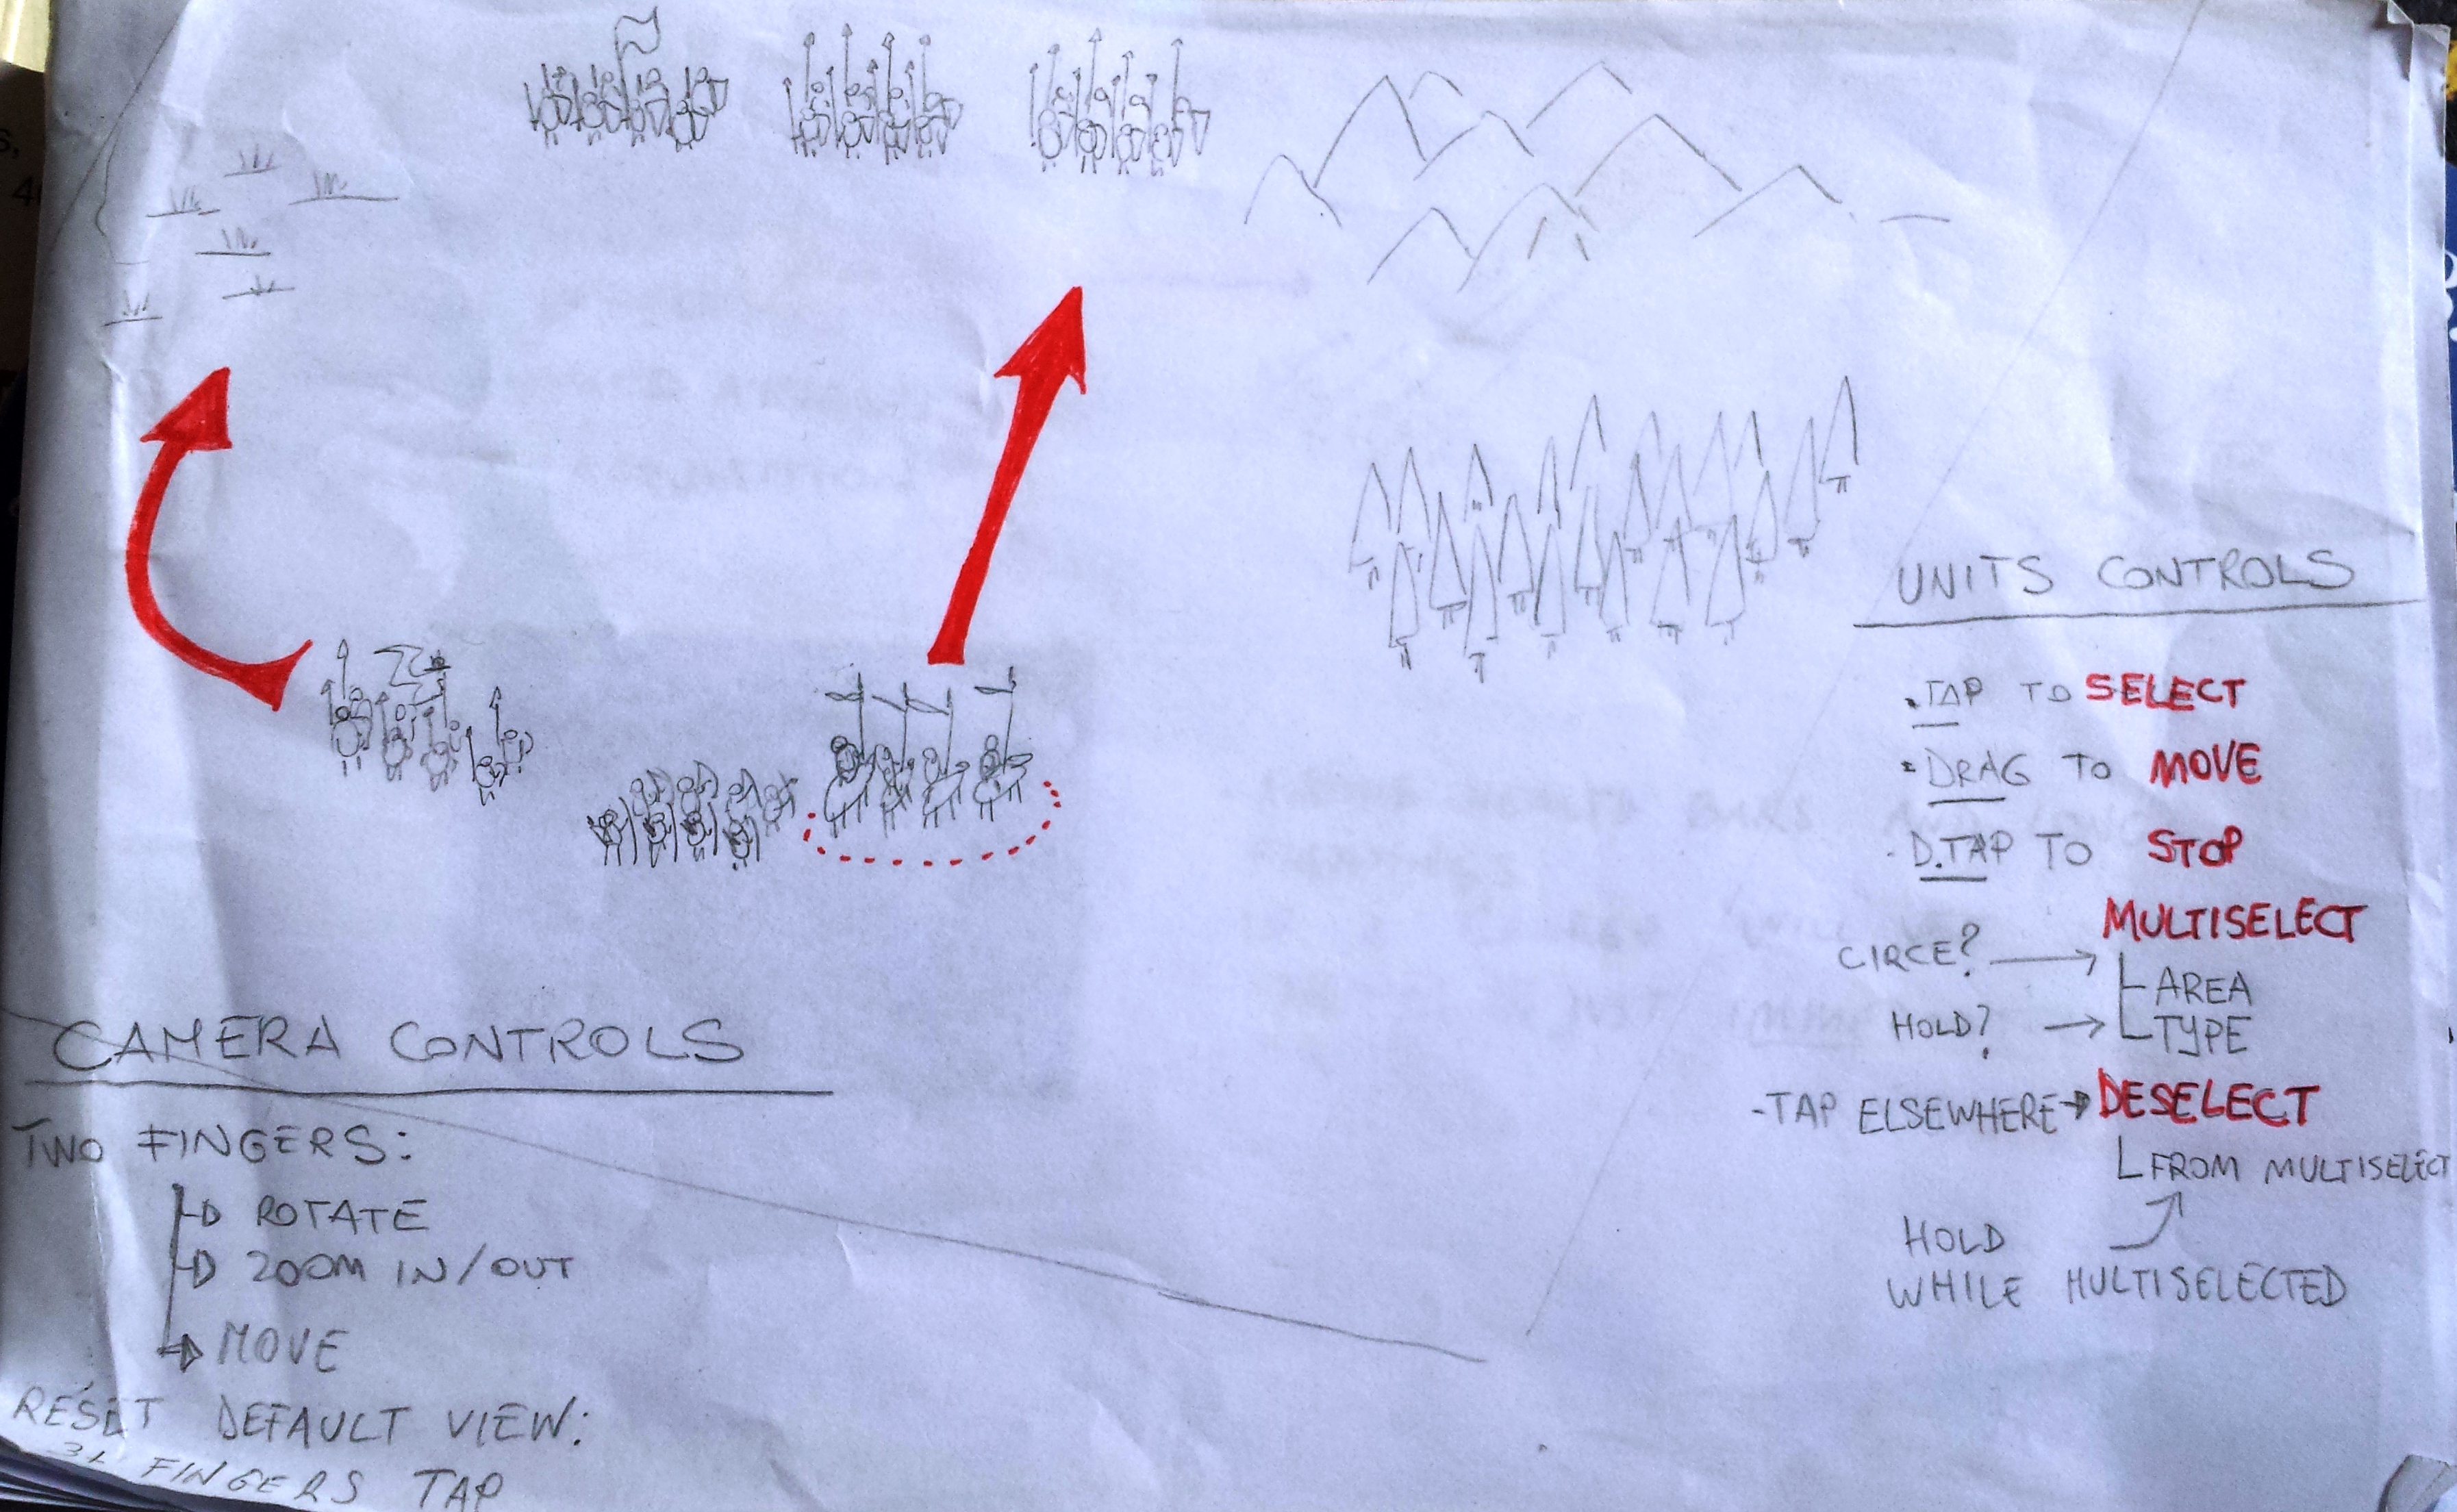 UNITS CONTROLS
.TAP TO SELECT
• DRAG TO MOVE
- D.TAP TO STOP
MULTISELECT
CIRCE? → AREA
HOLD? → TYPE
-TAP ELSEWHERE → DESELECT
FROM MULTISELECT
HOLD
WHILE MULTISELECTED
CAMERA CONTROLS
TWO FINGERS:
ROTATE
ZOOM IN/OUT
MOVE
RESET DEFAULT VIEW:
3+ FINGERS TAP